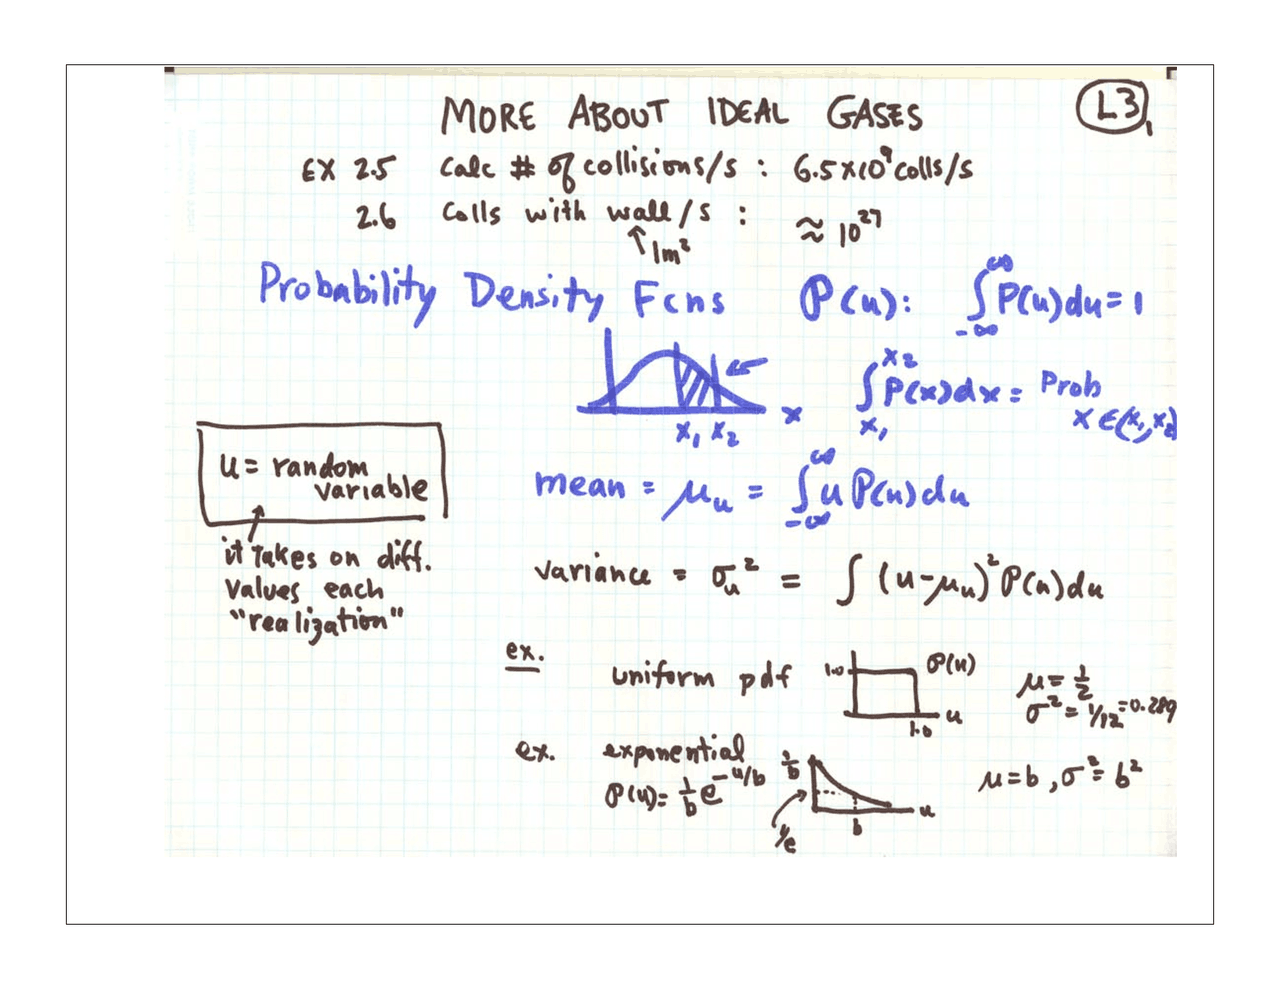 MORE ABOUT IDEAL GASES
L3,
EX 2.5 Calc # of collisions/s : 6.5×10⁹ colls/s
2.6 Colls with wall/s : ≈ 10²⁷
↑ 1m²
Probability Density Fcns P(u): ∫_{-∞}^{∞} P(u)du = 1
∫_{x₁}^{x₂} P(x)dx = Prob x ∈ (x₁, x₂)
x₁ x₂ x
u = random
variable
mean = μᵤ = ∫_{-∞}^{∞} u P(u)du
it takes on diff.
values each
"realization"
variance = σᵤ² = ∫ (u-μᵤ)² P(u)du
ex. uniform pdf
1.0 P(u)
1.0 u
μ = 1/2
σ² = 1/12 = 0.289
ex. exponential
P(u) = 1/b e^{-u/b}
1/b
b u
1/e
μ = b, σ² = b²